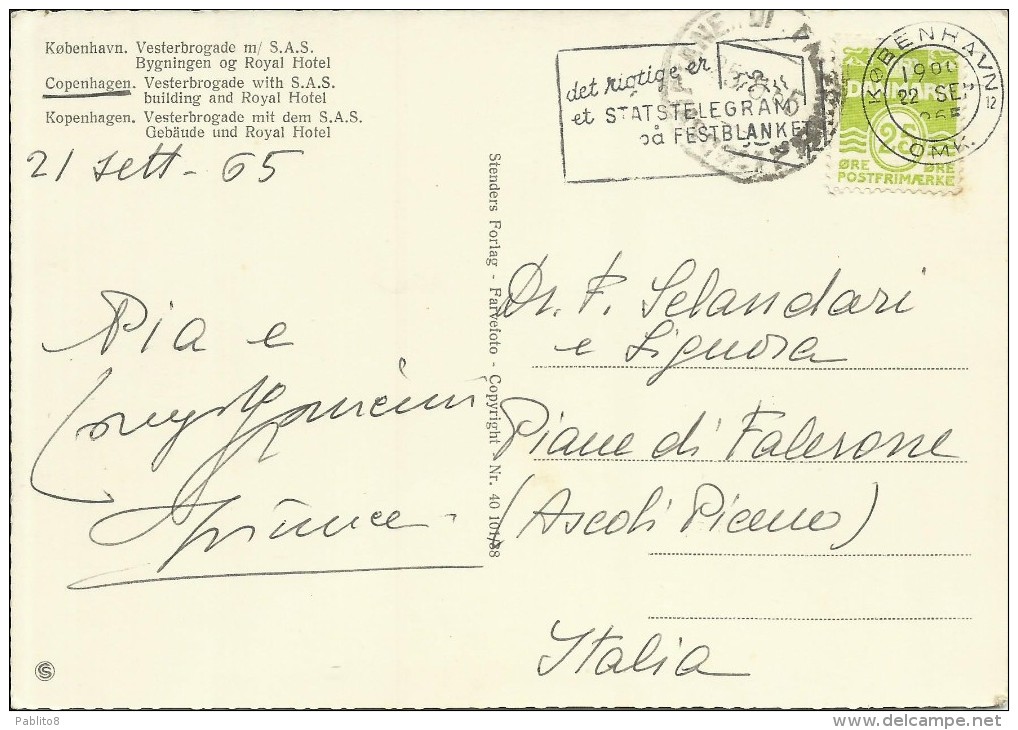 København. Vesterbrogade m/ S.A.S.
Bygningen og Royal Hotel
Copenhagen. Vesterbrogade with S.A.S.
building and Royal Hotel
Kopenhagen. Vesterbrogade mit dem S.A.S.
Gebäude und Royal Hotel
21 sett - 65
Pia e
Stenders Forlag - Farvefoto - Copyright Nr. 40 101/38
det rigtige er
et STATSTELEGRAM
på FESTBLANKET
KØBENHAVN
12
22 SE
OMK.
DANMARK
25
ØRE ØRE
POSTFRIMÆRKE
Dr. F. Selandari
e Signora
Piane di Falerone
(Ascoli Piceno)
Italia
Pablito8
delcampe.net